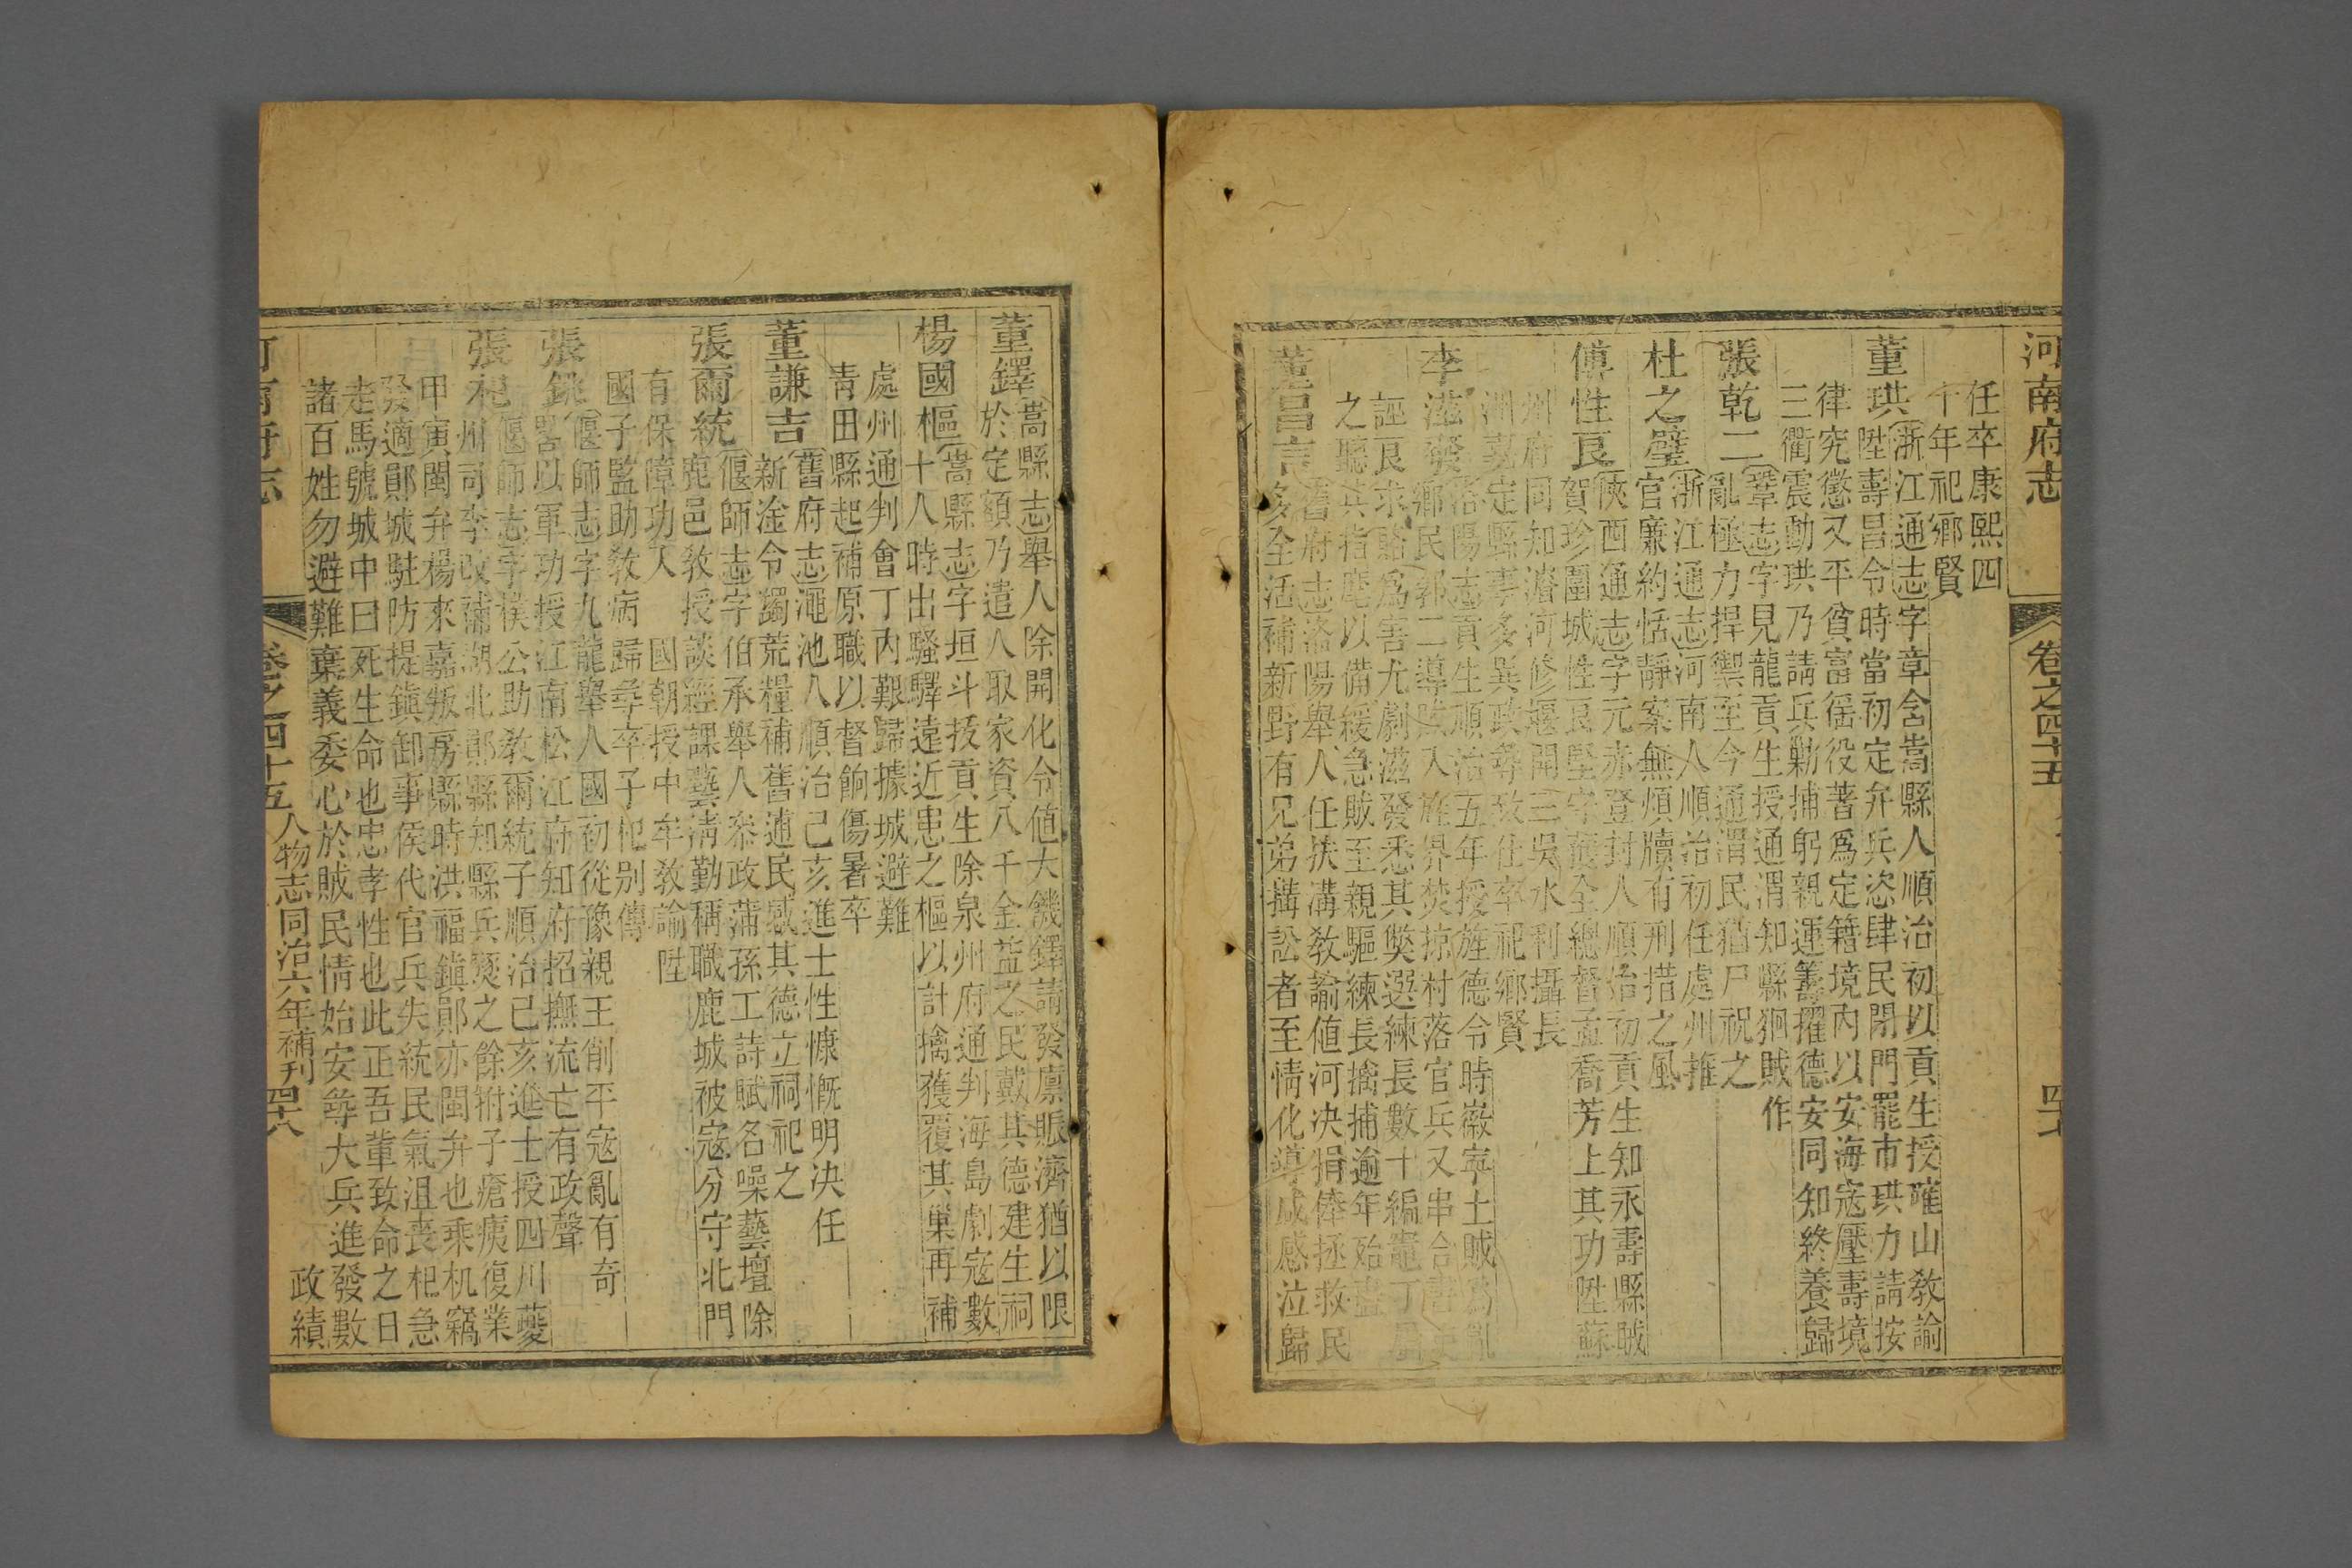 河南府志 卷之四十五 四十七
任卒康熙四
十年祀鄉賢
董珙 浙江通志字章含嵩縣人順治初以貢生授確山教諭
陞壽昌令時當初定弁兵恣肆民閉門罷市珙力請按
律究懲又平貧富徭役著為定籍境內以安海寇壓壽境
三衢震動珙乃請兵勦捕躬親運籌擢德安同知終養歸
張乾二 鞏志字見龍貢生授通渭知縣狥賊作
亂極力捍禦至今通渭民猶尸祝之
杜之璧 浙江通志河南人順治初任處州推
官廉約恬靜案無煩牘有刑措之風
傅性良 陜西通志字元赤登封人順治初貢生知永壽縣賊
賀珍圍城性良堅守獲全總督孟喬芳上其功陞蘇
州府同知濬河修堰開三吳水利攝長
洲嘉定縣事多異政尋致仕卒祀鄉賢
李滋發 洛陽志貢生順治五年授旌德令時徽寧土賊為亂
鄉民郭二導賊入旌界焚掠村落官兵又串合
誣良求賂為害尤劇滋發悉其獘選練長數十編竈丁
之聽其指麾以備緩急賊至親驅練長擒捕逾年殆盡
董昌言 舊府志洛陽舉人任扶溝教諭値河決捐俸拯救民
多全活補新野有兄弟搆訟者至情化導咸感泣歸
董鐸 嵩縣志舉人除開化令値大饑鐸請發廩賑濟猶以限
於定額乃遣人取家資八千金益之民戴其德建生祠
楊國樞 嵩縣志字垣斗拔貢生除泉州府通判海島劇寇數
十人時出騷驛遠近患之樞以計擒獲覆其巢再補
處州通判會丁內艱歸據城避難
靑田縣起補原職以督餉傷暑卒
董謙吉 舊府志澠池人順治己亥進士性慷慨明決任
新淦令蠲荒糧補舊逋民感其德立祠祀之
張爾統 偃師志字伯承舉人叅政蒲孫工詩賦名噪藝壇除
鹿邑敎授談經課藝淸勤稱職鹿城被寇分守北門
有保障功入 國朝授中牟敎諭陞
國子監助敎病歸尋卒子𣏌別傳
張銚 偃師志字九龍舉人國初從豫親王削平寇亂有奇
畧以軍功授江南松江府知府招撫流亡有政聲
張𣏌 偃師志字樸公助敎爾統子順治己亥進士授四川夔
州司李改補湖北鄖縣知縣兵燹之餘拊子瘡痍復業
甲寅閩弁楊來嘉叛房縣時洪福鎮鄖亦閩弁也乘机竊
發適鄖城駐防提鎮卸事侯代官兵失統民氣沮喪𣏌急
走馬號城中曰死生命也忠孝性也此正吾輩致命之日
諸百姓勿避難棄義委心於賊民情始安尋大兵進發數
河南府志 卷之四十五 人物志 同治六年補刊 四十八 政績